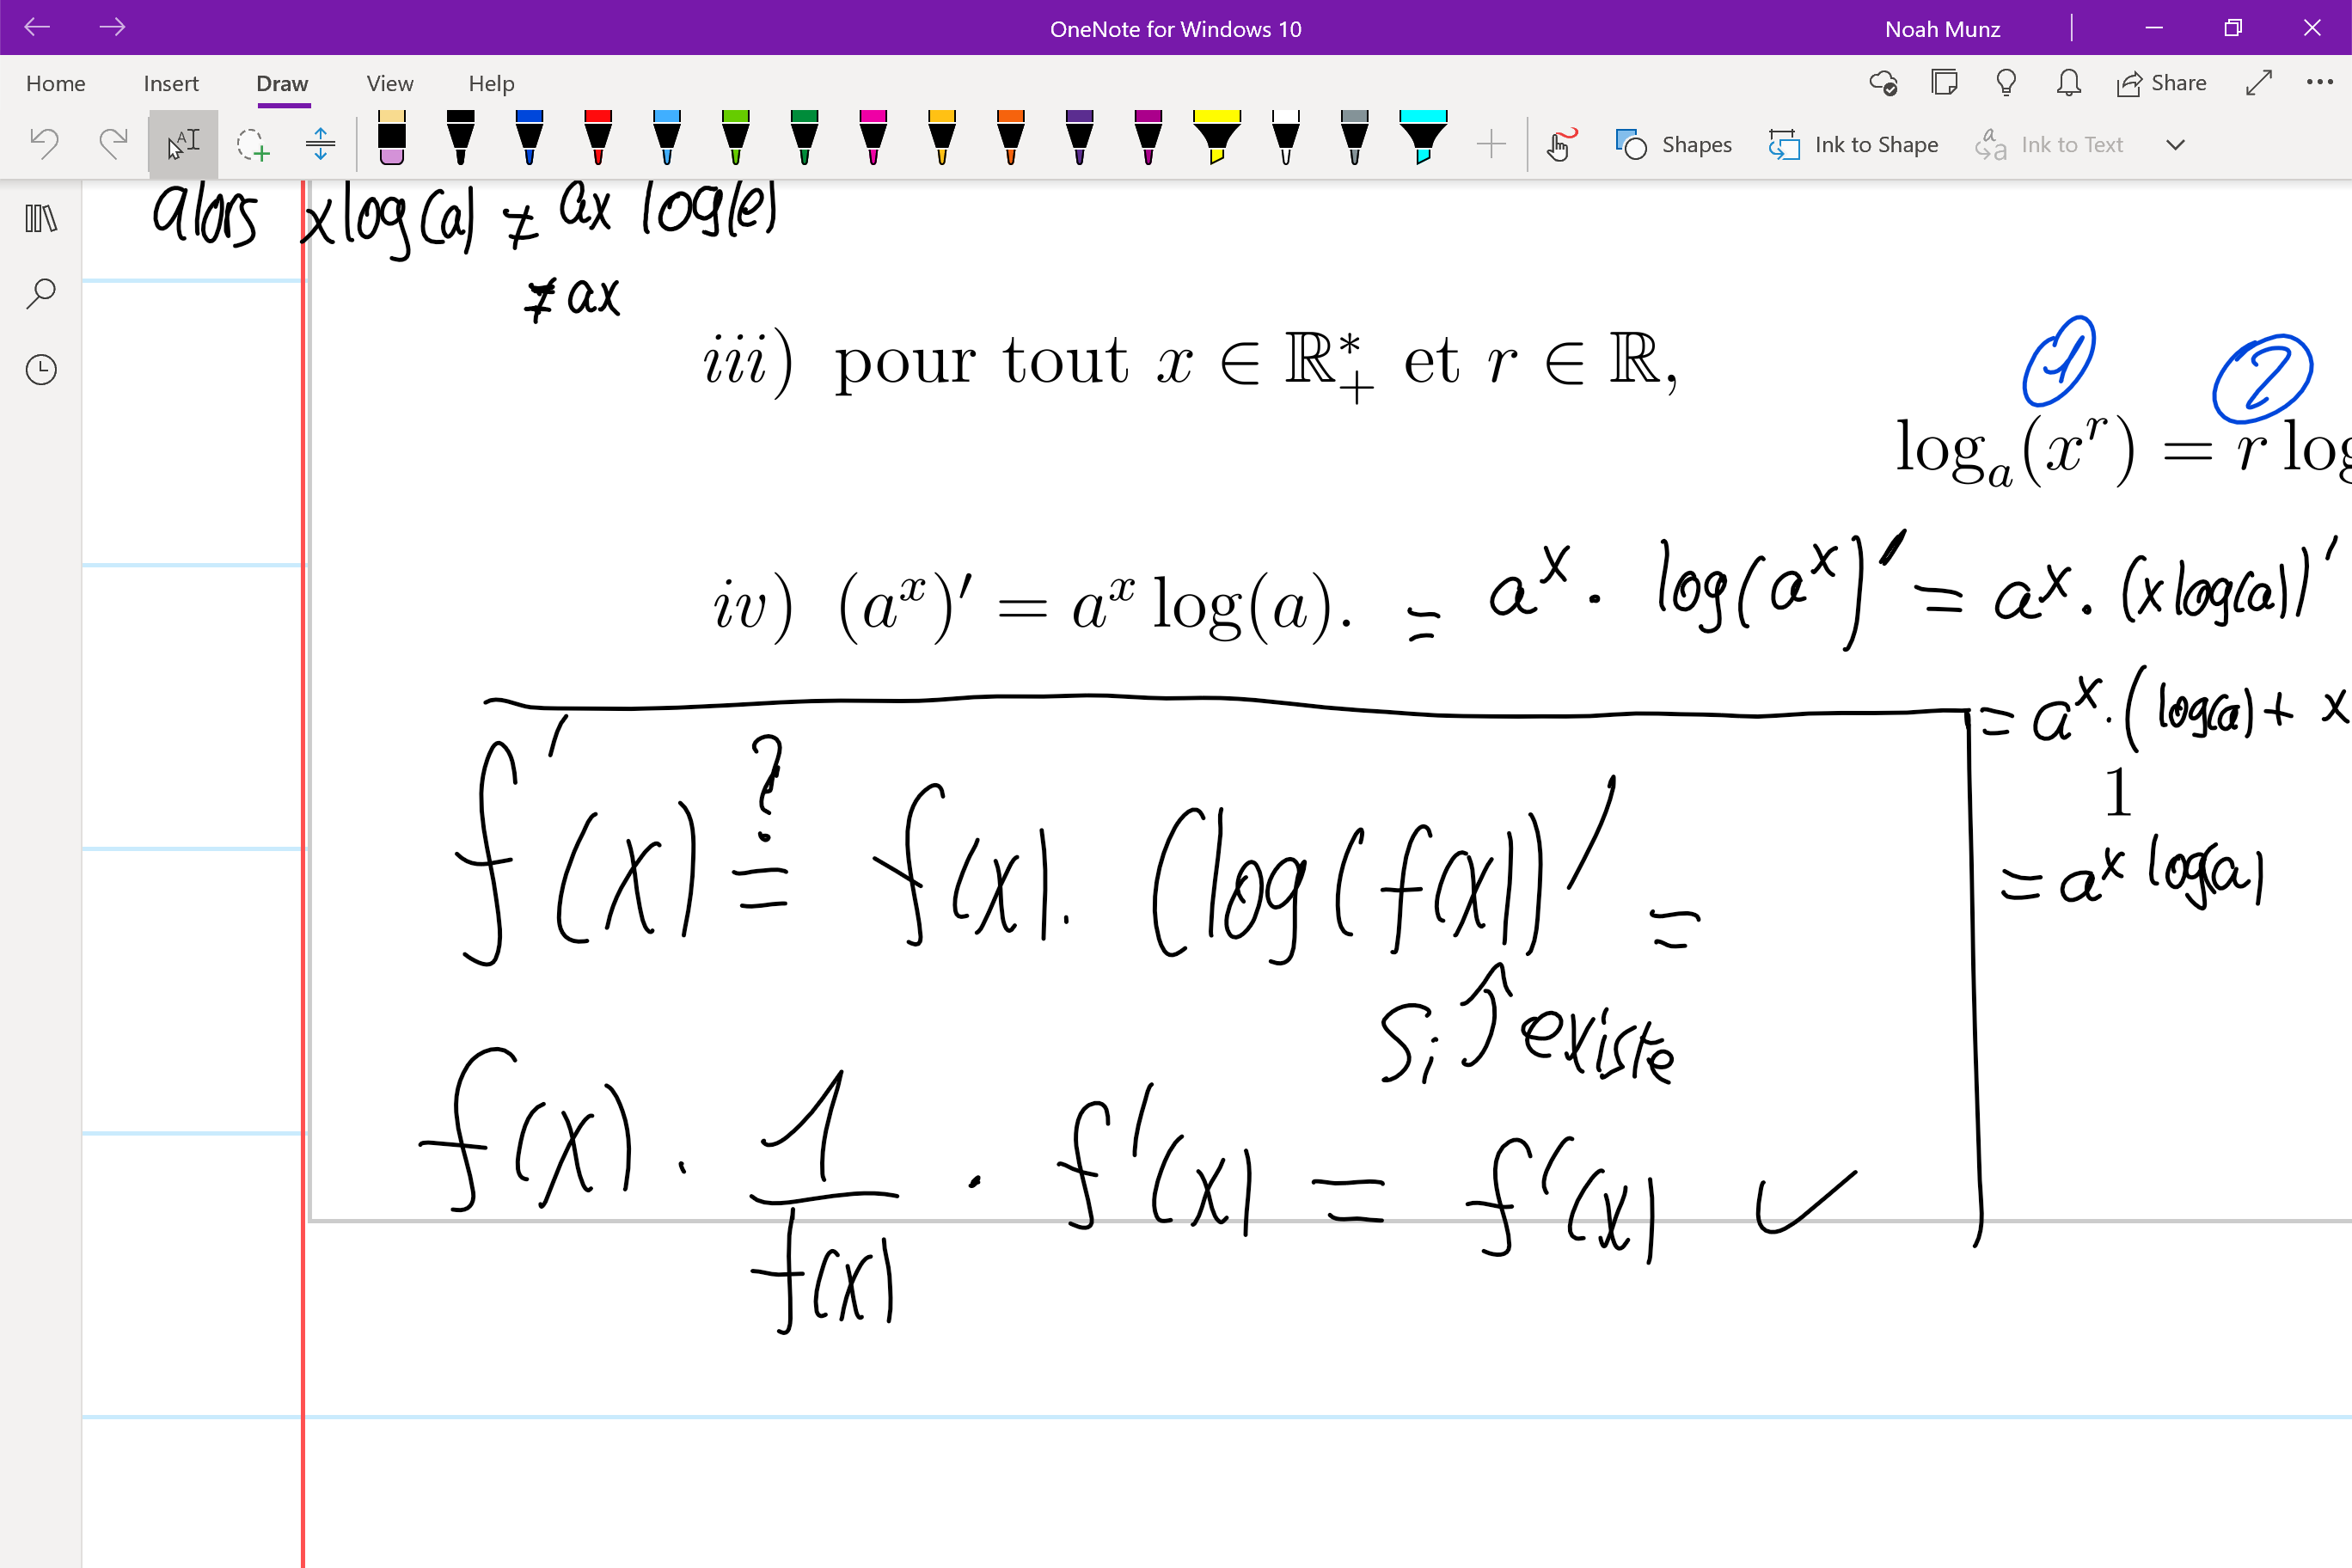 OneNote for Windows 10
Noah Munz
Home Insert Draw View Help
Share
Shapes Ink to Shape Ink to Text
alors x log(a) ≠ ax log(e)
≠ ax
iii) pour tout x ∈ ℝ₊* et r ∈ ℝ,
1 2
logₐ(xʳ) = r log
iv) (aˣ)′ = aˣ log(a). = aˣ · log(aˣ)′ = aˣ · (x log(a))′
= aˣ · (log(a) + x
1
= aˣ log(a)
f′(x) ?= f(x) · (log(f(x))′ =
Si ↑ existe
f(x) · 1/f(x) · f′(x) = f′(x) ✓